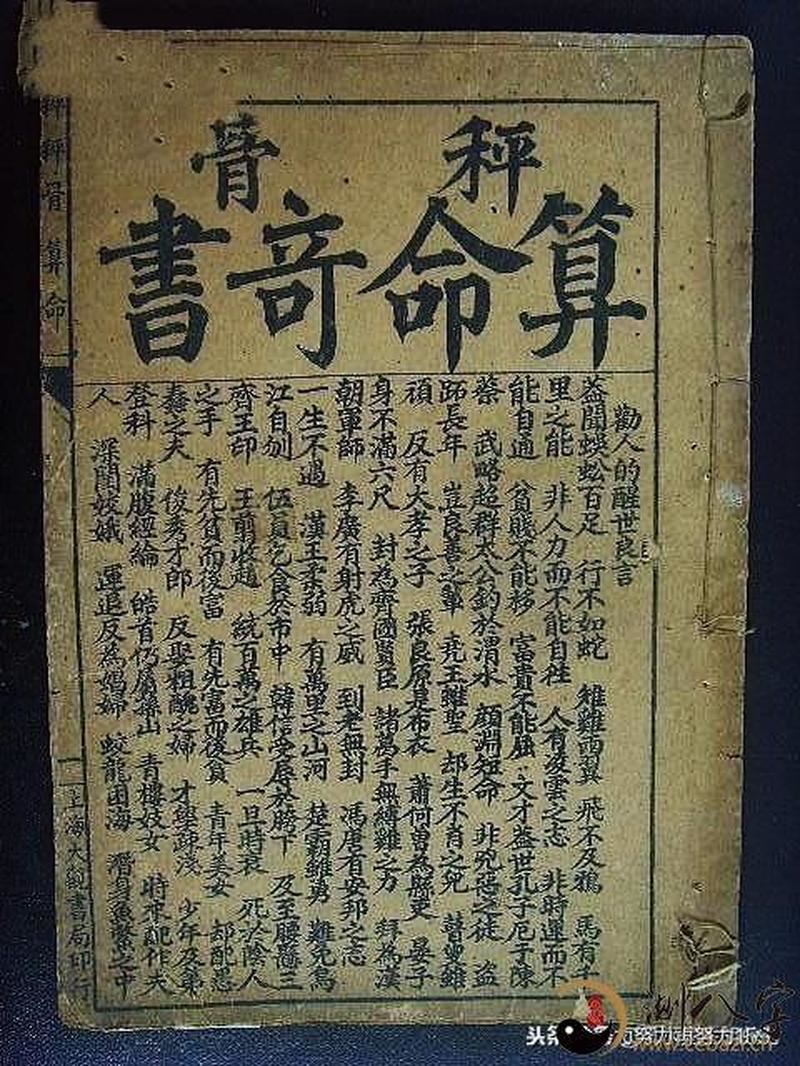 秤骨
算命竒書
勸人的醒世良言
蓋聞蜈蚣百足 行不如蛇 雉雞両翼 飛不及鴉 馬有千
里之能 非人力而不能自往 人有凌雲之志 非時運而不
能自通 貧賤不能移 富貴不能屈 文才蓋世孔子厄于陳
蔡 武略超群太公釣於渭水 顏淵短命 非兇惡之徒 盜
跖長年 豈良善之輩 堯王雖聖 却生不肖之兒 瞽叟雖
頑 反有大孝之子 張良原是布衣 蕭何曾為縣吏 晏子
身不滿六尺 封為齊國賢臣 諸萬手無縛雞之力 拜為漢
朝軍師 李廣有射虎之威 到老無封 馮唐有安邦之志
一生不遇 漢王柔弱 有萬里之山河 楚霸雖勇 難免烏
江自刎 伍員乞食於市中 韓信受辱於胯下 及至腰懸三
齊王印 王翦收趙 統百萬之雄兵 一旦時衰 死於陰人
之手 有先貧而後富 有先富而後貧 青年美女 却配愚
蠢之夫 俊秀才郎 反娶粗醜之婦 才學疎淺 少年及第
登科 滿腹經綸 皓首仍居山 青樓妓女 時來配作夫
人 深閨姣娥 運退反為娼婦 蛟龍困海 潛身魚鱉之中
秤骨算命
上海大觀書局印行
测八字
头条